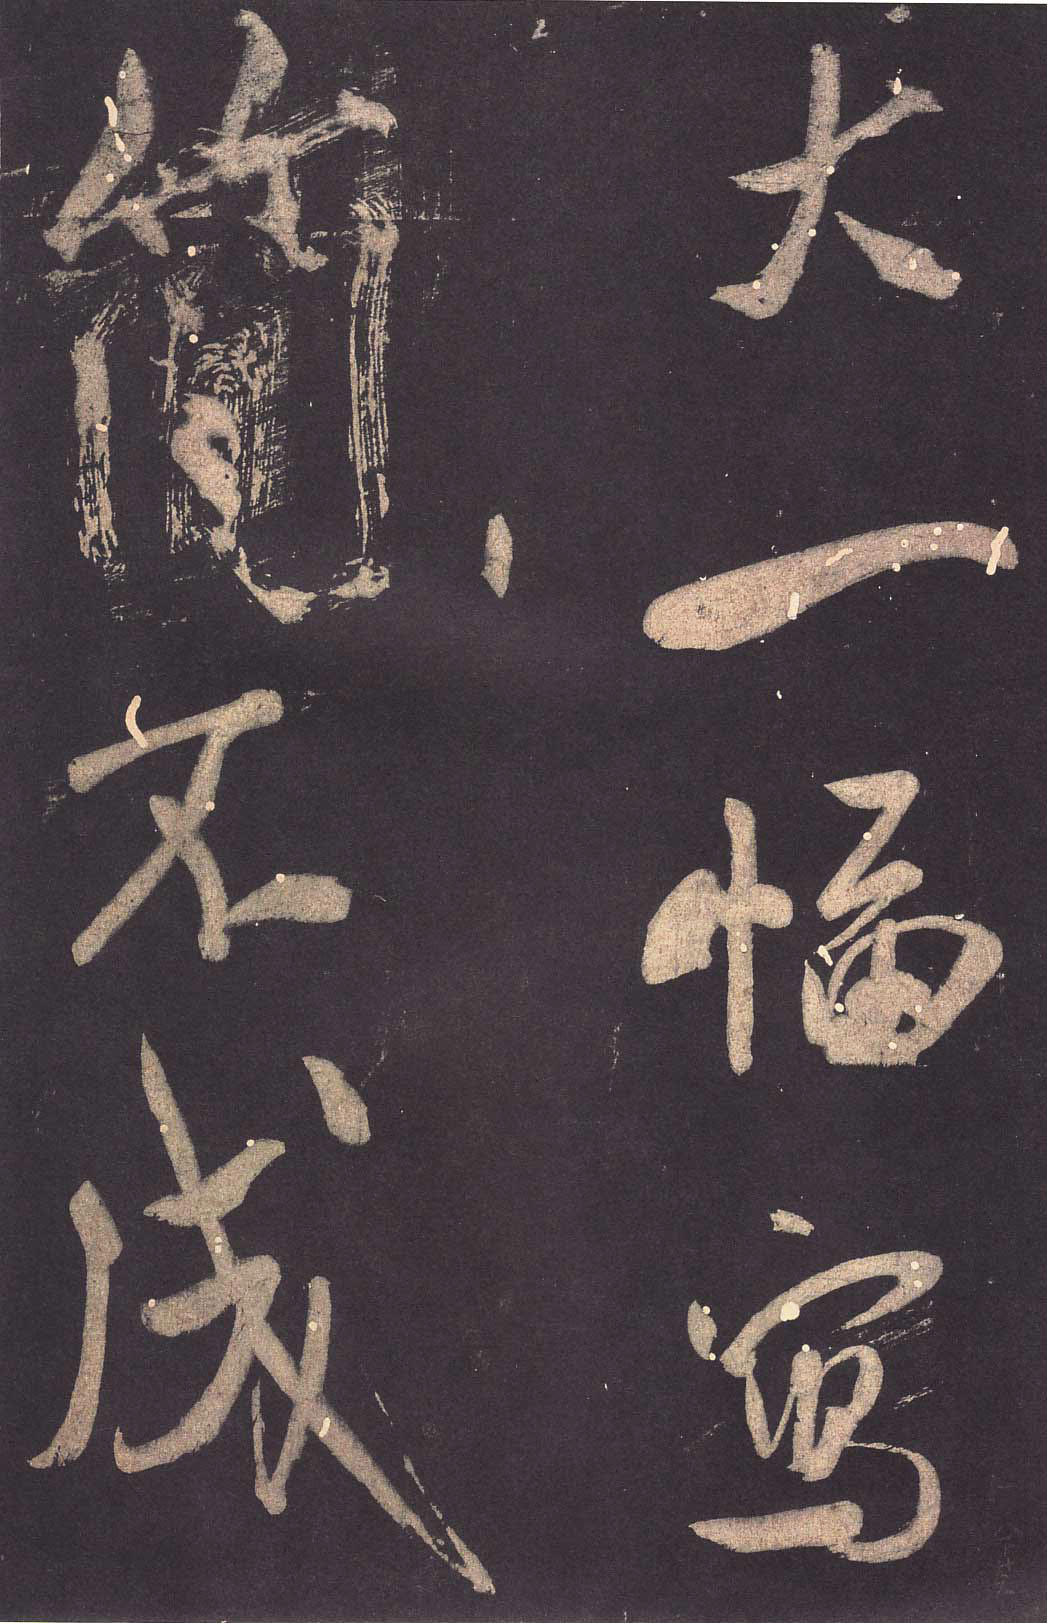 大一幅寫
不成